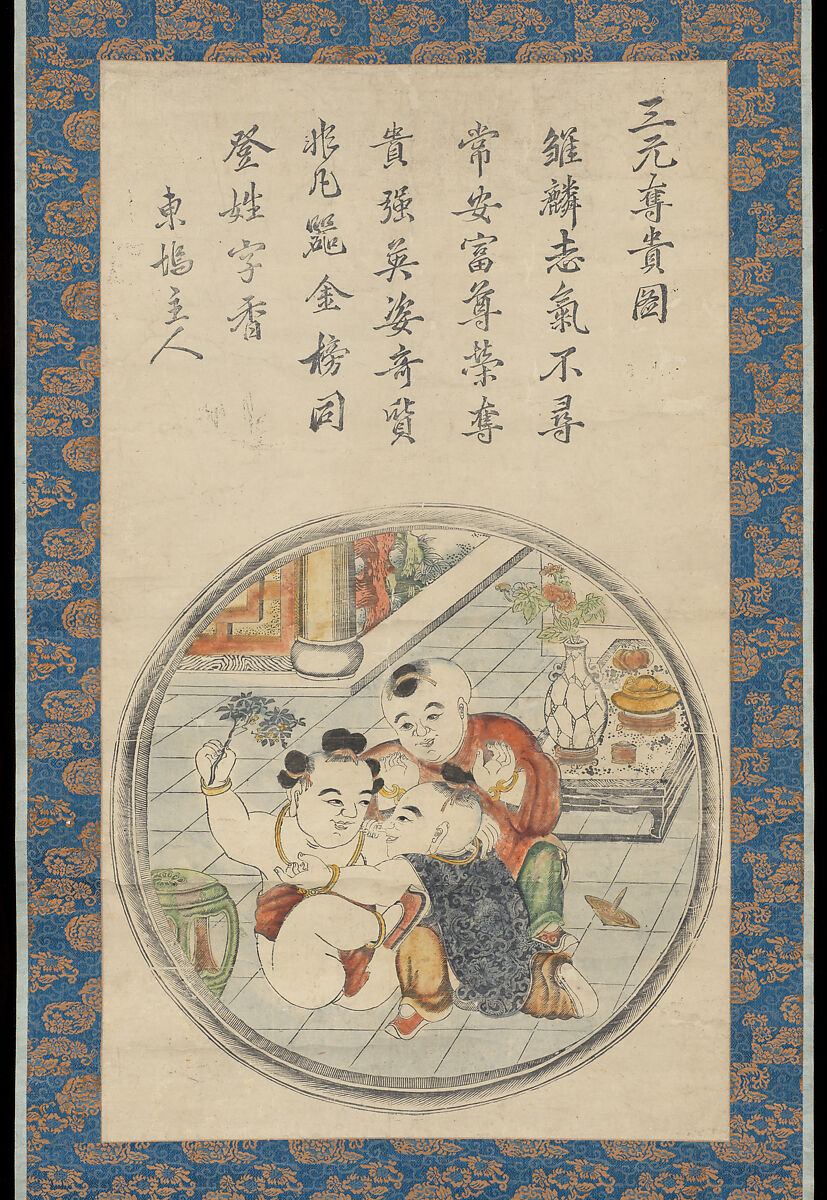 三元奪貴圖
雛麟志氣不尋
常安富尊榮奪
貴强英姿奇貨
非凡器金榜同
登姓字香
東塢主人